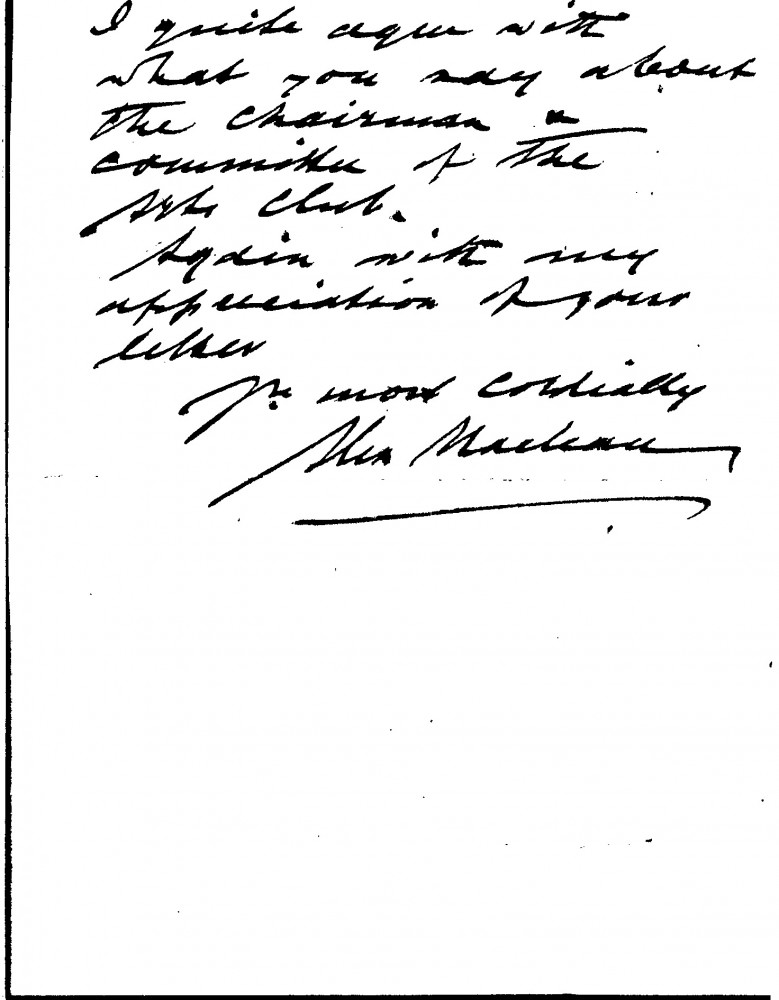 I quite agree with
what you say about
the Chairman &
committee of the
Arts Club.
Again with my
appreciation of your
letter
Yrs most cordially
Alex Maclean